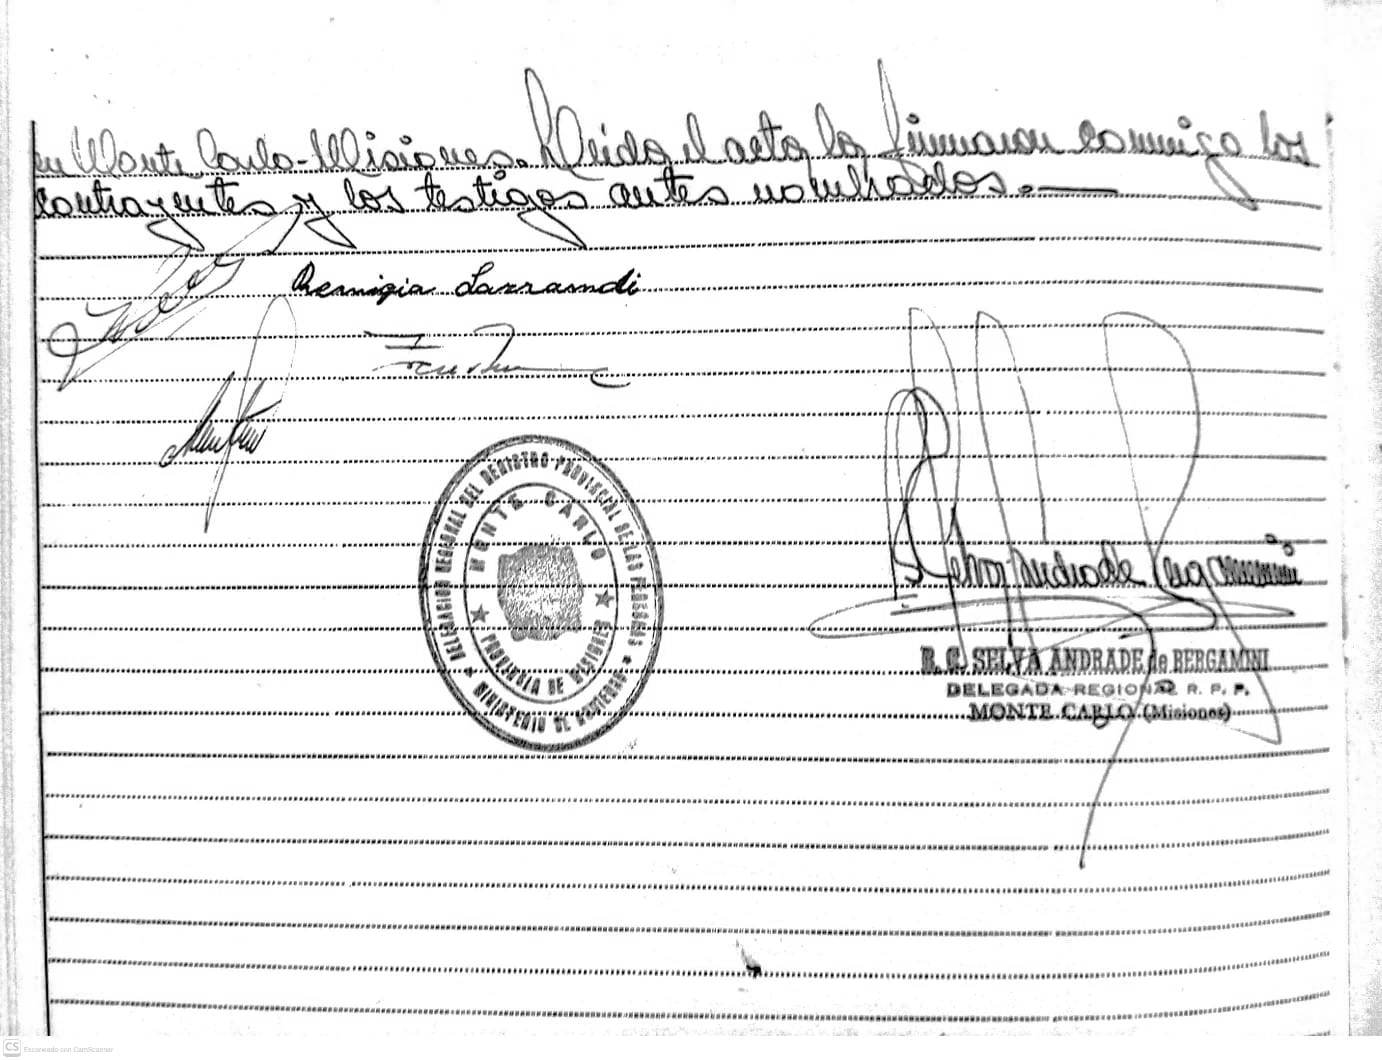 en Monte Carlo - Misiones. Leída el acta la firmaron conmigo los
contrayentes y los testigos antes nombrados. —
Remigia Larramdi
DELEGACION REGIONAL DEL REGISTRO PROVINCIAL DE LAS PERSONAS
MONTE CARLO
PROVINCIA DE MISIONES
MINISTERIO DE GOBIERNO
Selva Andrade Bergamini
R. C. SELVA ANDRADE de BERGAMINI
DELEGADA REGIONAL R. P. P.
MONTE CARLO (Misiones)
CS Escaneado con CamScanner